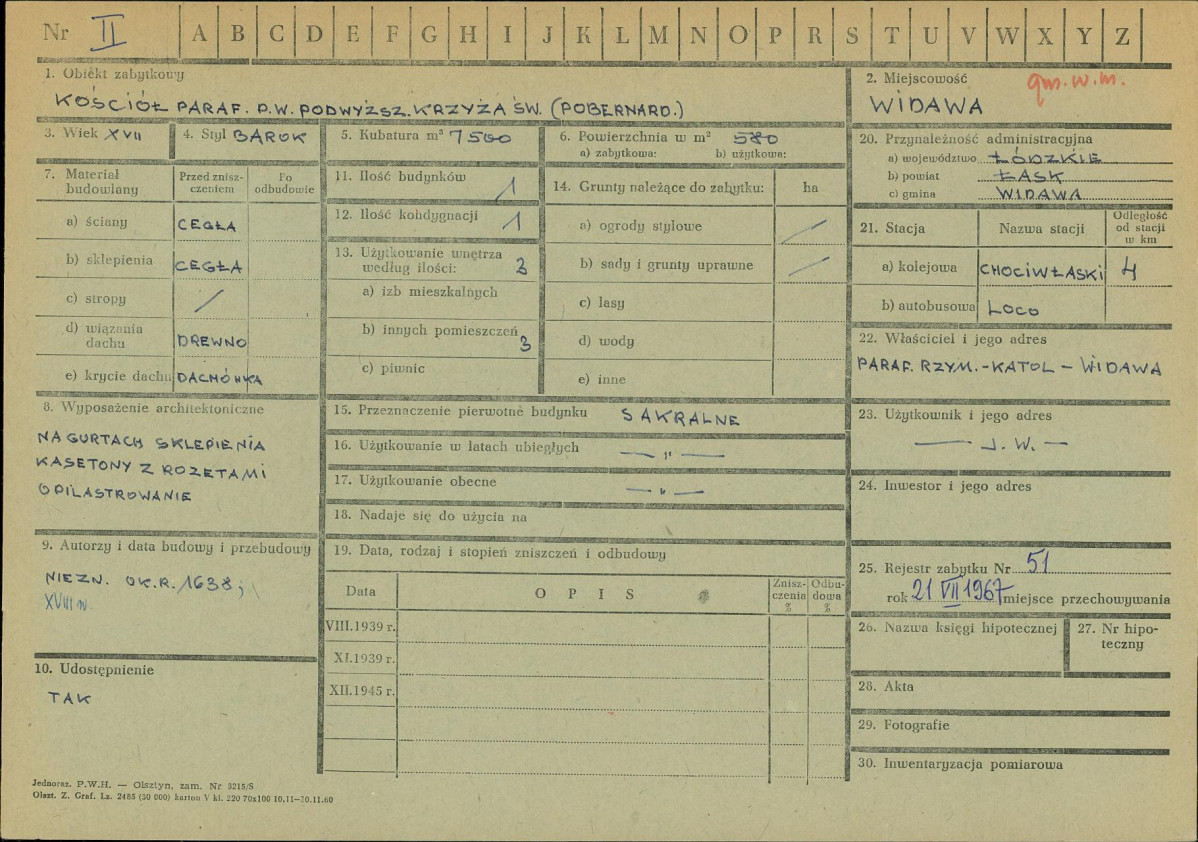 Nr II A B C D E F G H I J K L M N O P R S T U V W X Y Z
1. Obiekt zabytkowy
KOŚCIÓŁ PARAF. P.W. PODWYŻSZ. KRZYŻA ŚW. (POBERNARD.)
2. Miejscowość
gm. w. m.
WIDAWA
3. Wiek XVII
4. Styl BAROK
5. Kubatura m³ 7500
6. Powierzchnia w m² 580
a) zabytkowa: b) użytkowa:
20. Przynależność administracyjna
a) województwo ŁÓDZKIE
b) powiat ŁASK
c) gmina WIDAWA
7. Materiał budowlany
Przed znisz-
czeniem
Po
odbudowie
a) ściany CEGŁA
b) sklepienia CEGŁA
c) stropy /
d) wiązania
dachu DREWNO
e) krycie dachu DACHÓWKA
11. Ilość budynków 1
12. Ilość kondygnacji 1
13. Użytkowanie wnętrza
według ilości: 3
a) izb mieszkalnych
b) innych pomieszczeń 3
c) piwnic
14. Grunty należące do zabytku: ha
a) ogrody stylowe /
b) sady i grunty uprawne /
c) lasy
d) wody
e) inne
21. Stacja Nazwa stacji
Odległość
od stacji
w km
a) kolejowa CHOCIWŁASKI 4
b) autobusowa LOCO
22. Właściciel i jego adres
PARAF. RZYM.-KATOL - WIDAWA
8. Wyposażenie architektoniczne
NA GURTACH SKLEPIENIA
KASETONY Z ROZETAMI
OPILASTROWANIE
15. Przeznaczenie pierwotne budynku SAKRALNE
16. Użytkowanie w latach ubiegłych — " —
17. Użytkowanie obecne — " —
18. Nadaje się do użycia na
23. Użytkownik i jego adres
— J. W. —
24. Inwestor i jego adres
9. Autorzy i data budowy i przebudowy
NIEZN. OK. R. 1638;
XVIII w.
19. Data, rodzaj i stopień zniszczeń i odbudowy
Data OPIS
Znisz-
czenia
%
Odbu-
dowa
%
VIII.1939 r.
XI.1939 r.
XII.1945 r.
25. Rejestr zabytku Nr 51
rok 21 VII 1967 miejsce przechowywania
26. Nazwa księgi hipotecznej
27. Nr hipo-
teczny
10. Udostępnienie
TAK
28. Akta
29. Fotografie
30. Inwentaryzacja pomiarowa
Jednoraz. P.W.H. — Olsztyn, zam. Nr 3215/S
Olszt. Z. Graf. Lz. 2485 (30 000) karton V kl. 220 70x100 10.11—30.11.60